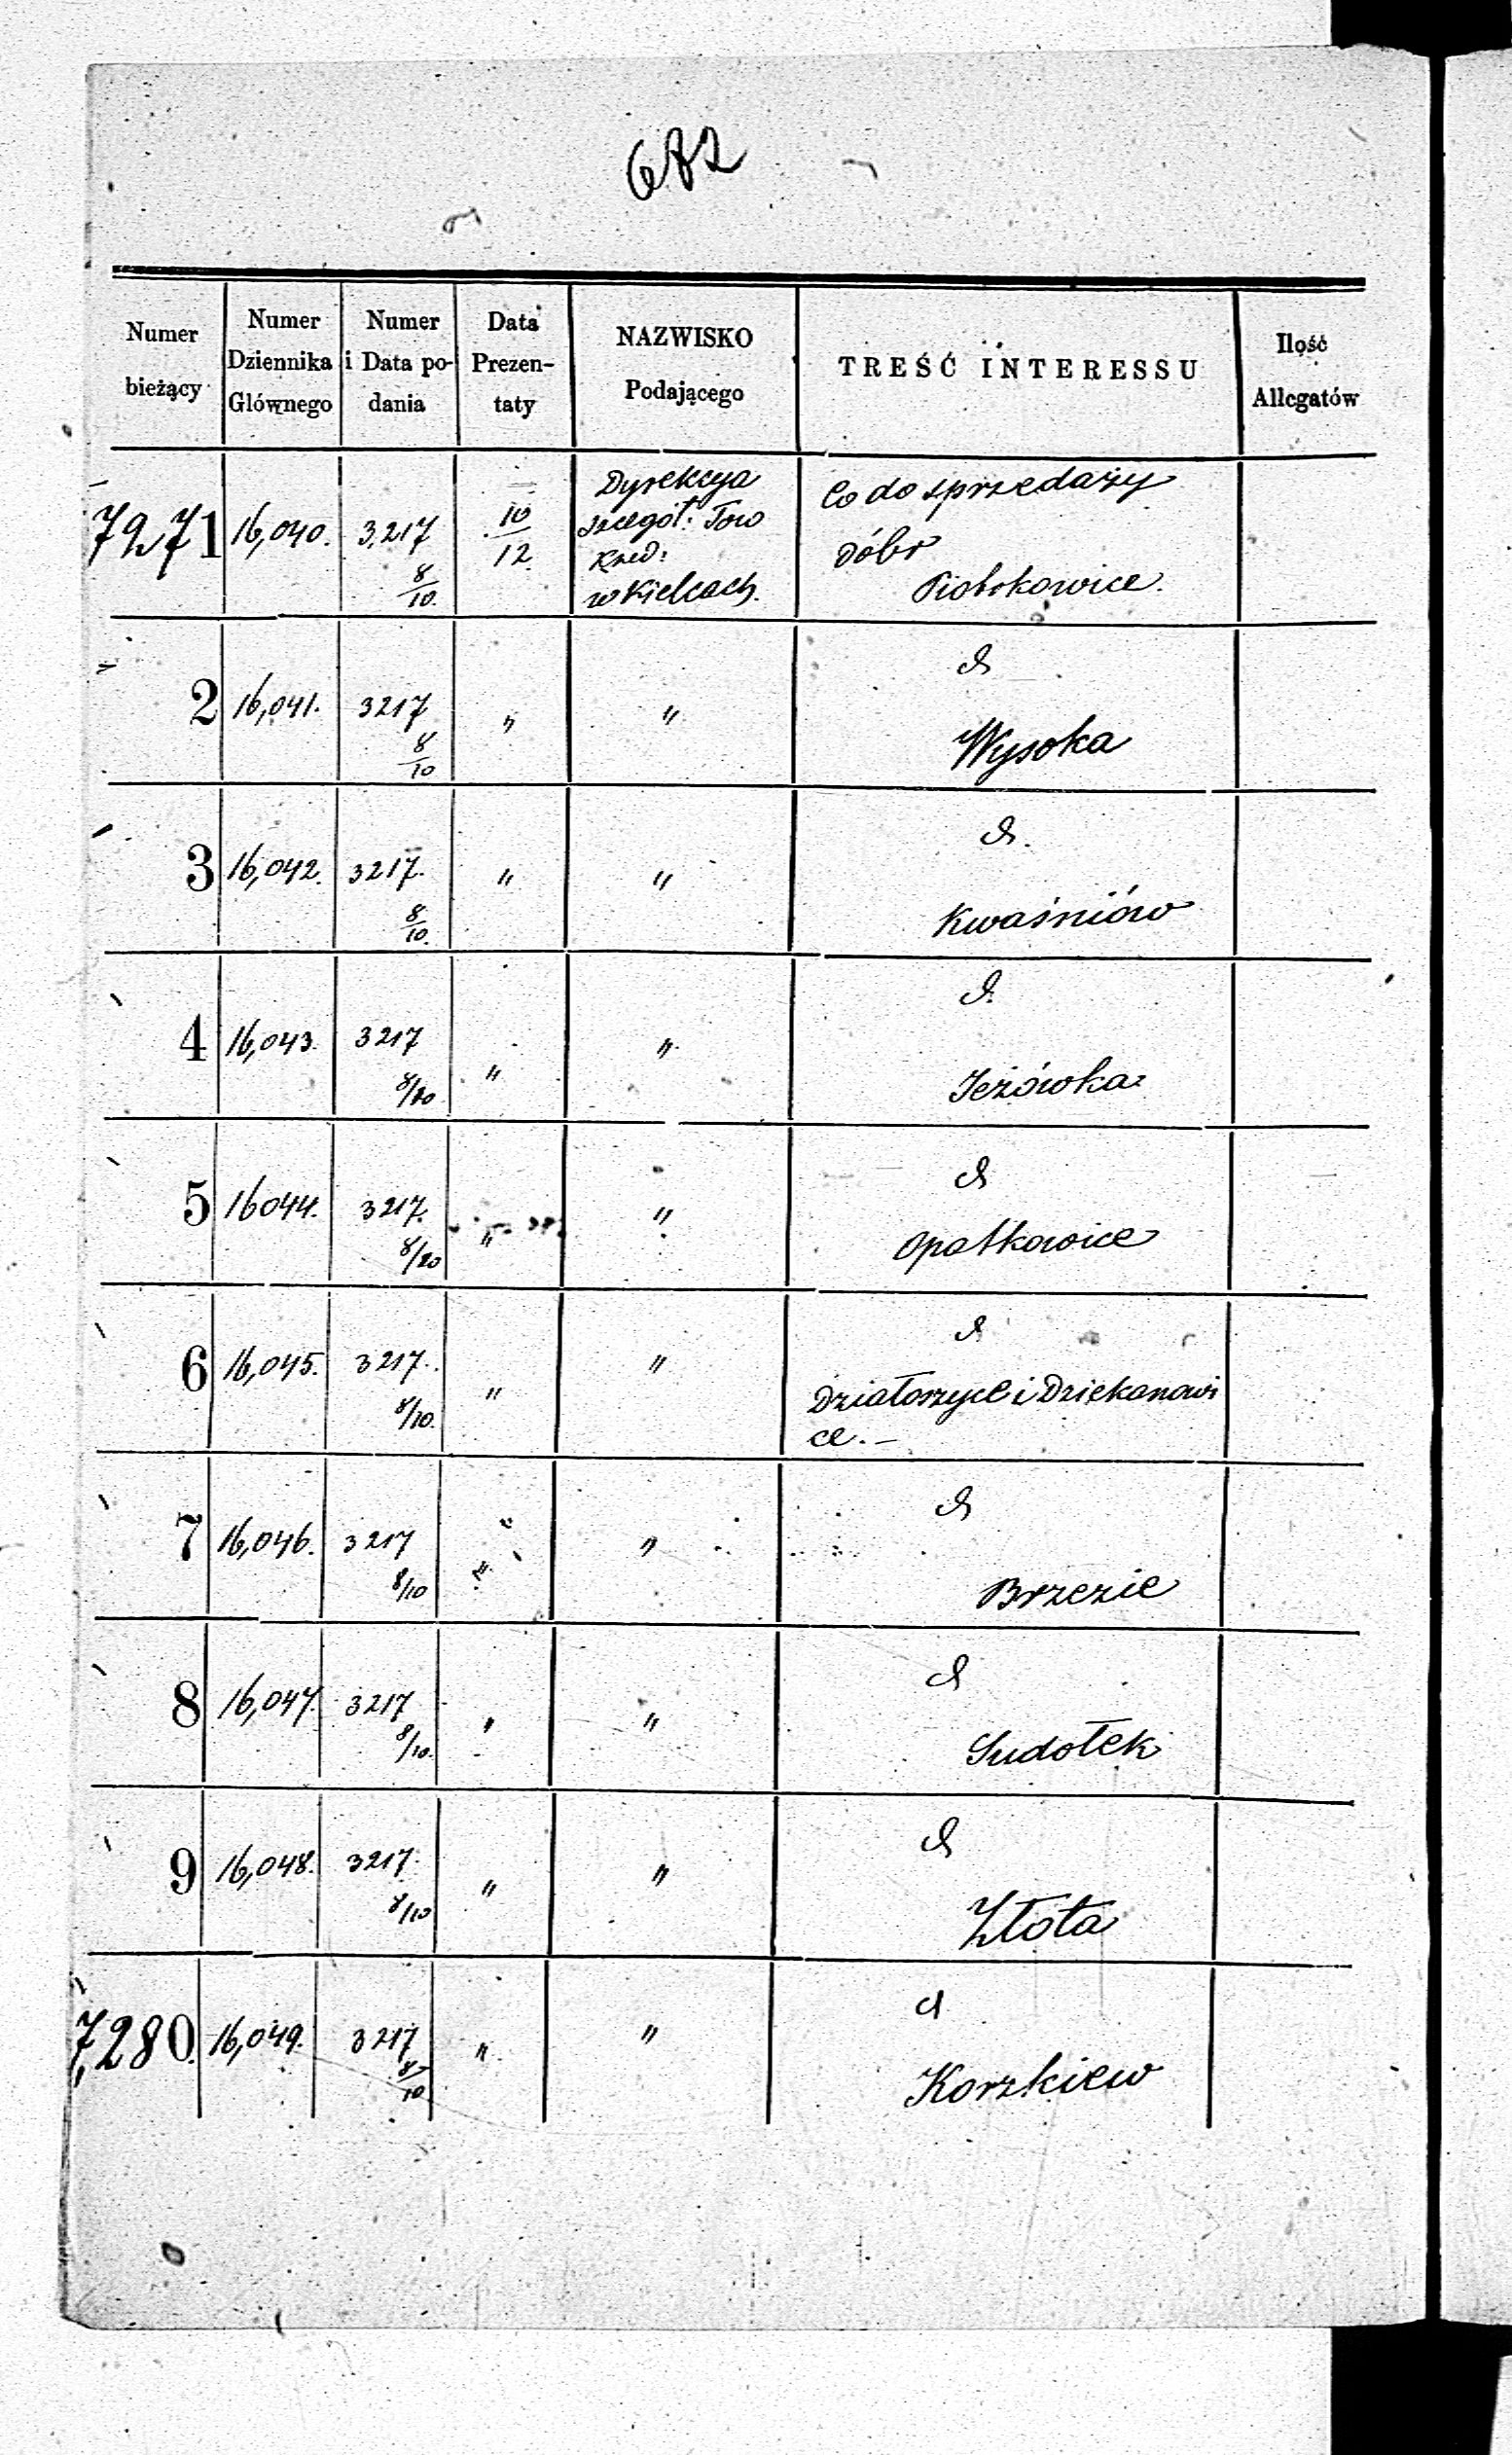 682
Numer bieżący
Numer Dziennika Głównego
Numer i Data podania
Data Prezentaty
NAZWISKO Podającego
TREŚĆ INTERESSU
Ilość Allegatów
7271 16,040. 3,217 8/10. 10/12
Dyrekcya
szczegół: Tow
Kred:
w Kielcach.
Co do sprzedaży
Dóbr
Piotrkowice.
2 16,041. 3217 8/10 " "
Wysoka
3 16,042. 3217. 8/10. " "
Kwaśniów
4 16,043. 3217 8/10 " "
Jeżówka
5 16044. 3217. 8/10 " "
Opatkowice
6 16,045. 3217. 8/10. " "
Działoszyce i Dziekanowi
ce. –
7 16,046. 3217 8/10 " "
Brzezie
8 16,047. 3217 8/10. " "
Sudołek
9 16,048. 3217. 8/10 " "
Złota
7,280. 16,049. 3217 8/10 " "
Korzkiew